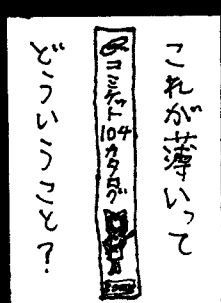 これが薄いって
コミケット104カタログ
どういうこと？